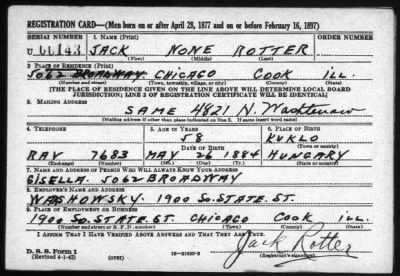 REGISTRATION CARD—(Men born on or after April 28, 1877 and on or before February 16, 1897)
SERIAL NUMBER 1. NAME (Print) ORDER NUMBER
U 00143 JACK NONE ROTTER
(First) (Middle) (Last)
2. PLACE OF RESIDENCE (Print)
5062 BROADWAY. CHICAGO COOK ILL.
(Number and street) (Town, township, village, or city) (County) (State)
[THE PLACE OF RESIDENCE GIVEN ON THE LINE ABOVE WILL DETERMINE LOCAL BOARD
JURISDICTION; LINE 2 OF REGISTRATION CERTIFICATE WILL BE IDENTICAL]
3. MAILING ADDRESS
SAME 4821 N. Washtenaw
[Mailing address if other than place indicated on line 2. If same insert word same]
4. TELEPHONE 5. AGE IN YEARS 6. PLACE OF BIRTH
58 KUKLO
DATE OF BIRTH (Town or county)
RAV 7683 MAY 26 1884 HUNGARY
(Exchange) (Number) (Mo.) (Day) (Yr.) (State or country)
7. NAME AND ADDRESS OF PERSON WHO WILL ALWAYS KNOW YOUR ADDRESS
GISELLA. 5062 BROADWAY
8. EMPLOYER'S NAME AND ADDRESS
WARSHOWSKY. 1900 SO. STATE. ST.
9. PLACE OF EMPLOYMENT OR BUSINESS
1900 SO. STATE. ST. CHICAGO COOK ILL.
(Number and street or R. F. D. number) (Town) (County) (State)
I AFFIRM THAT I HAVE VERIFIED ABOVE ANSWERS AND THAT THEY ARE TRUE.
D. S. S. Form 1
(Revised 4-1-42) (over) Jack Rotter
(Registrant's signature)